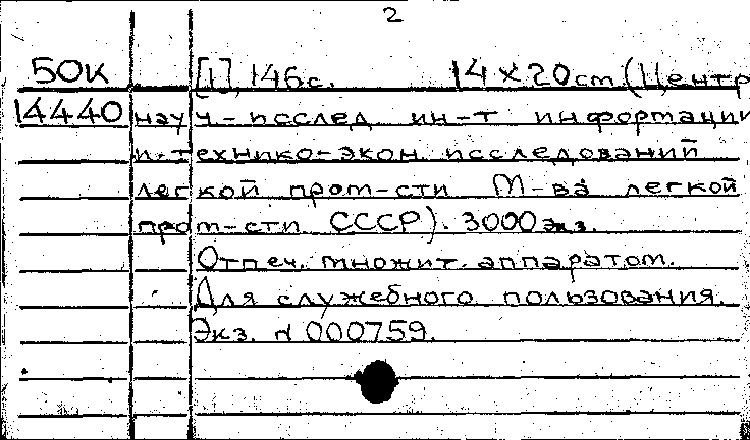 2
50К [1], 146с. 14×20см (Центр
14440 науч-исслед. ин-т информации
и технико-экон. исследований
легкой пром-сти М-ва легкой
пром-сти СССР). 3000 экз.
Отпеч. множит. аппаратом.
Для служебного пользования.
Экз. № 000759.